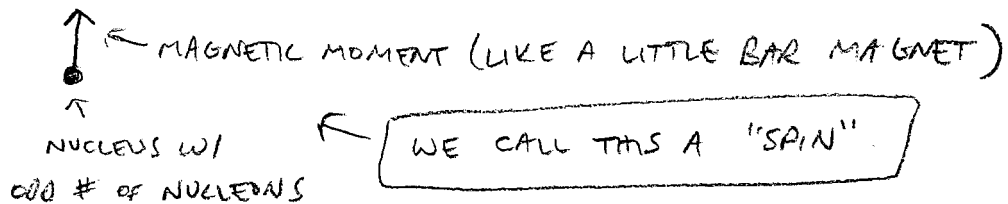 MAGNETIC MOMENT (LIKE A LITTLE BAR MAGNET)
NUCLEUS W/
ODD # OF NUCLEONS
WE CALL THIS A "SPIN"